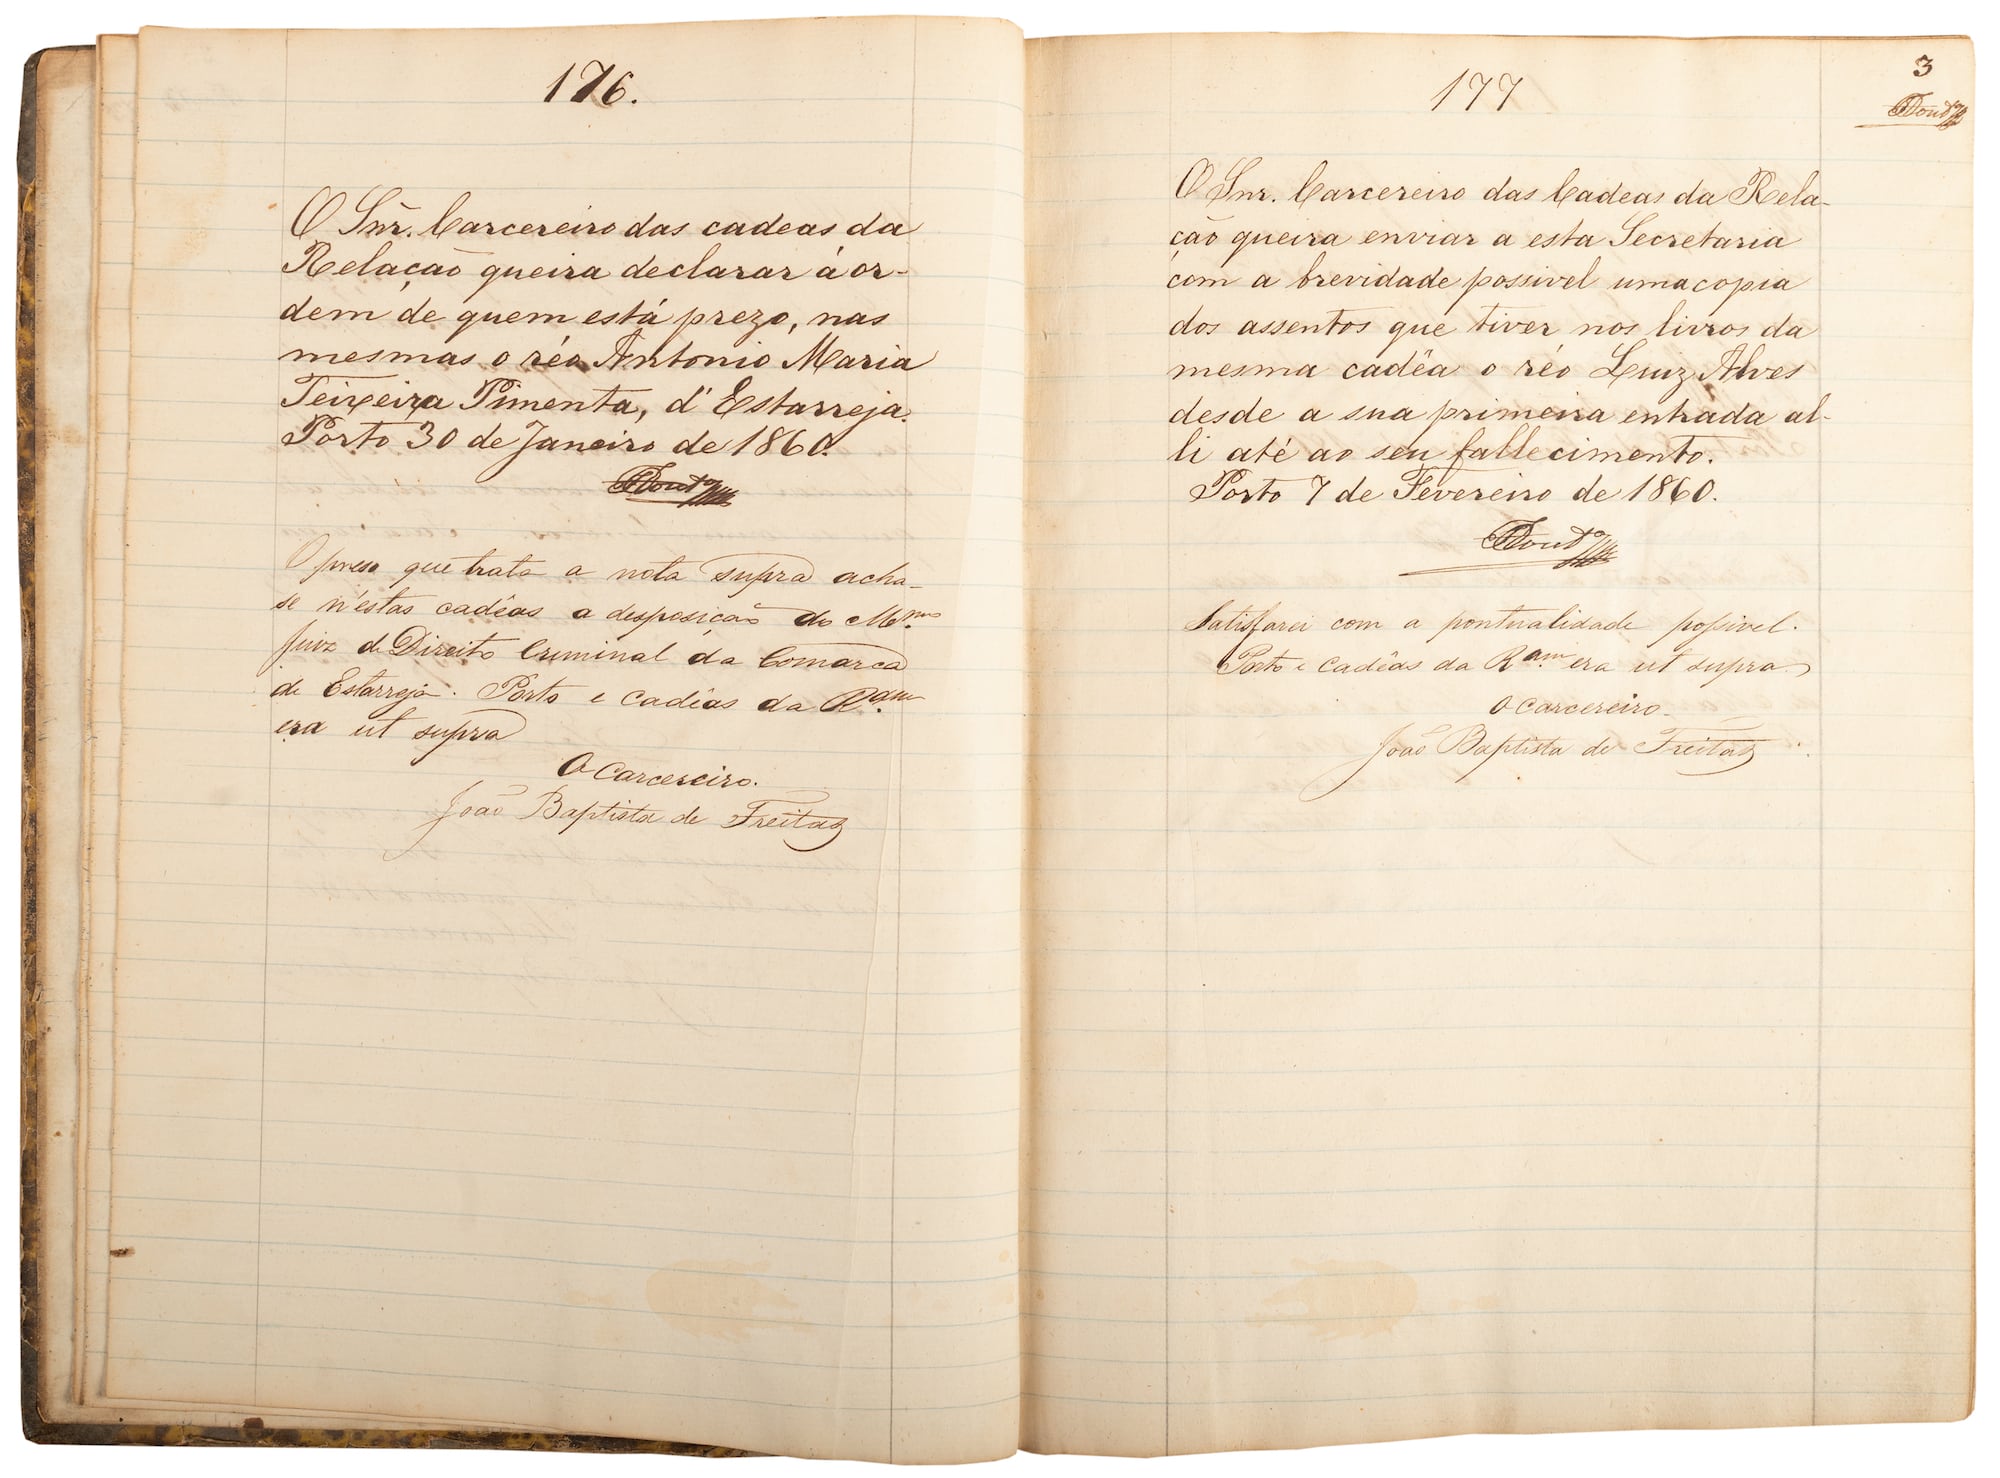 176.
O Snr. Carcereiro das cadeas da
Relação queira declarar á or-
dem de quem está prezo, nas
mesmas o réo Antonio Maria
Teixeira Pimenta, d'Estarreja.
Porto 30 de Janeiro de 1860.
O preso que trata a nota supra acha-
se n'estas cadêas a desposição do Mmo.
Juiz de Direito Criminal da Comarca
de Estarreja. Porto e cadêas da Ram.
era ut supra
O Carcereiro.
João Baptista de Freitas
177
3
O Snr. Carcereiro das Cadeas da Rela-
ção queira enviar a esta Secretaria
com a brevidade possivel uma copia
dos assentos que tiver nos livros da
mesma cadêa o réo Luiz Alves
desde a sua primeira entrada al-
li até ao seu fallecimento.
Porto 7 de Fevereiro de 1860.
Satisfarei com a pontualidade possivel.
Porto e cadêas da Ram era ut supra
O Carcereiro
João Baptista de Freitas